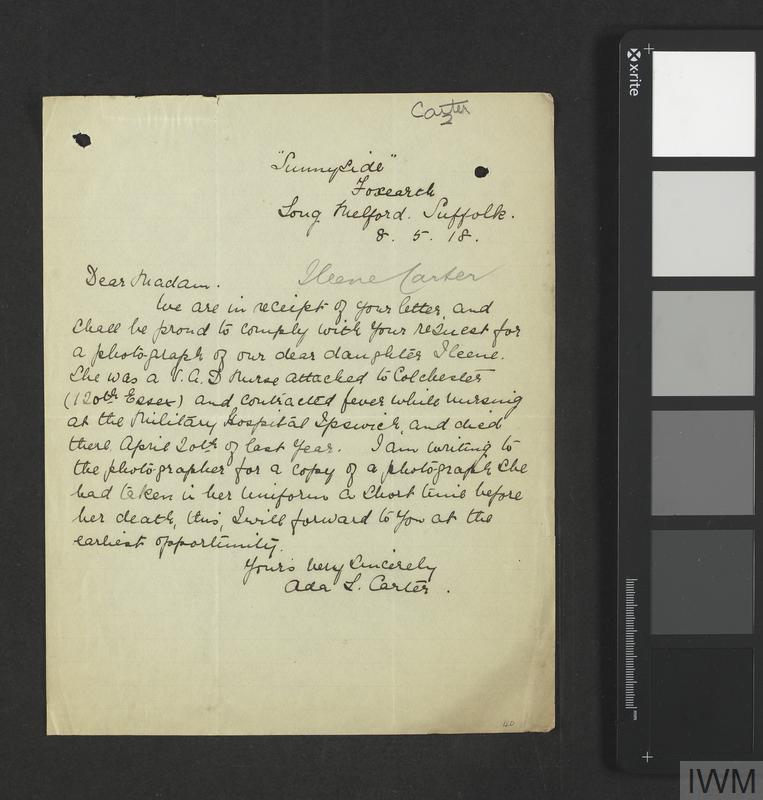 Carter
2
"Sunnyside"
Foxearth
Long Melford. Suffolk.
8. 5. 18.
Dear Madam.
Ileene Carter
We are in receipt of your letter, and
shall be proud to comply with your request for
a photograph of our dear daughter Ileene.
She was a V.A.D Nurse attached to Colchester
(120th Essex) and contracted fever while nursing
at the Military Hospital Ipswich, and died
there April 20th of last year. I am writing to
the photographer for a copy of a photograph she
had taken in her uniform a short time before
her death, this, I will forward to you at the
earliest opportunity.
Your's Very Sincerely
Ada L. Carter.
40
x-rite
mm
IWM